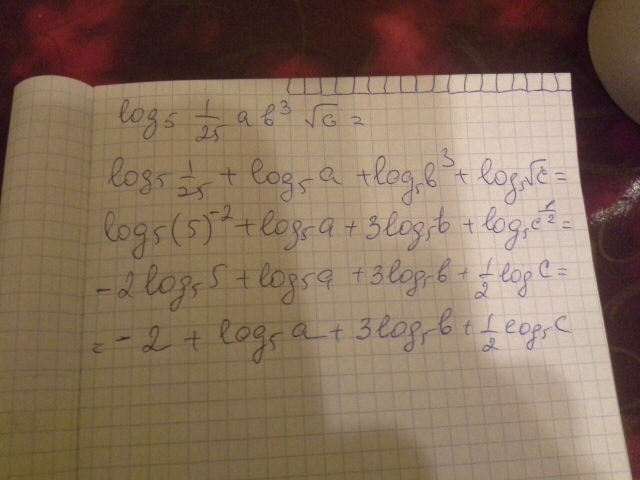 log₅ 1/25 a b³ √c =
log₅ 1/25 + log₅ a + log₅ b³ + log₅ √c =
log₅(5)⁻² + log₅ a + 3log₅ b + log₅ c^(1/2) =
-2 log₅ 5 + log₅ a + 3log₅ b + 1/2 log C =
= -2 + log₅ a + 3log₅ b + 1/2 log₅ C